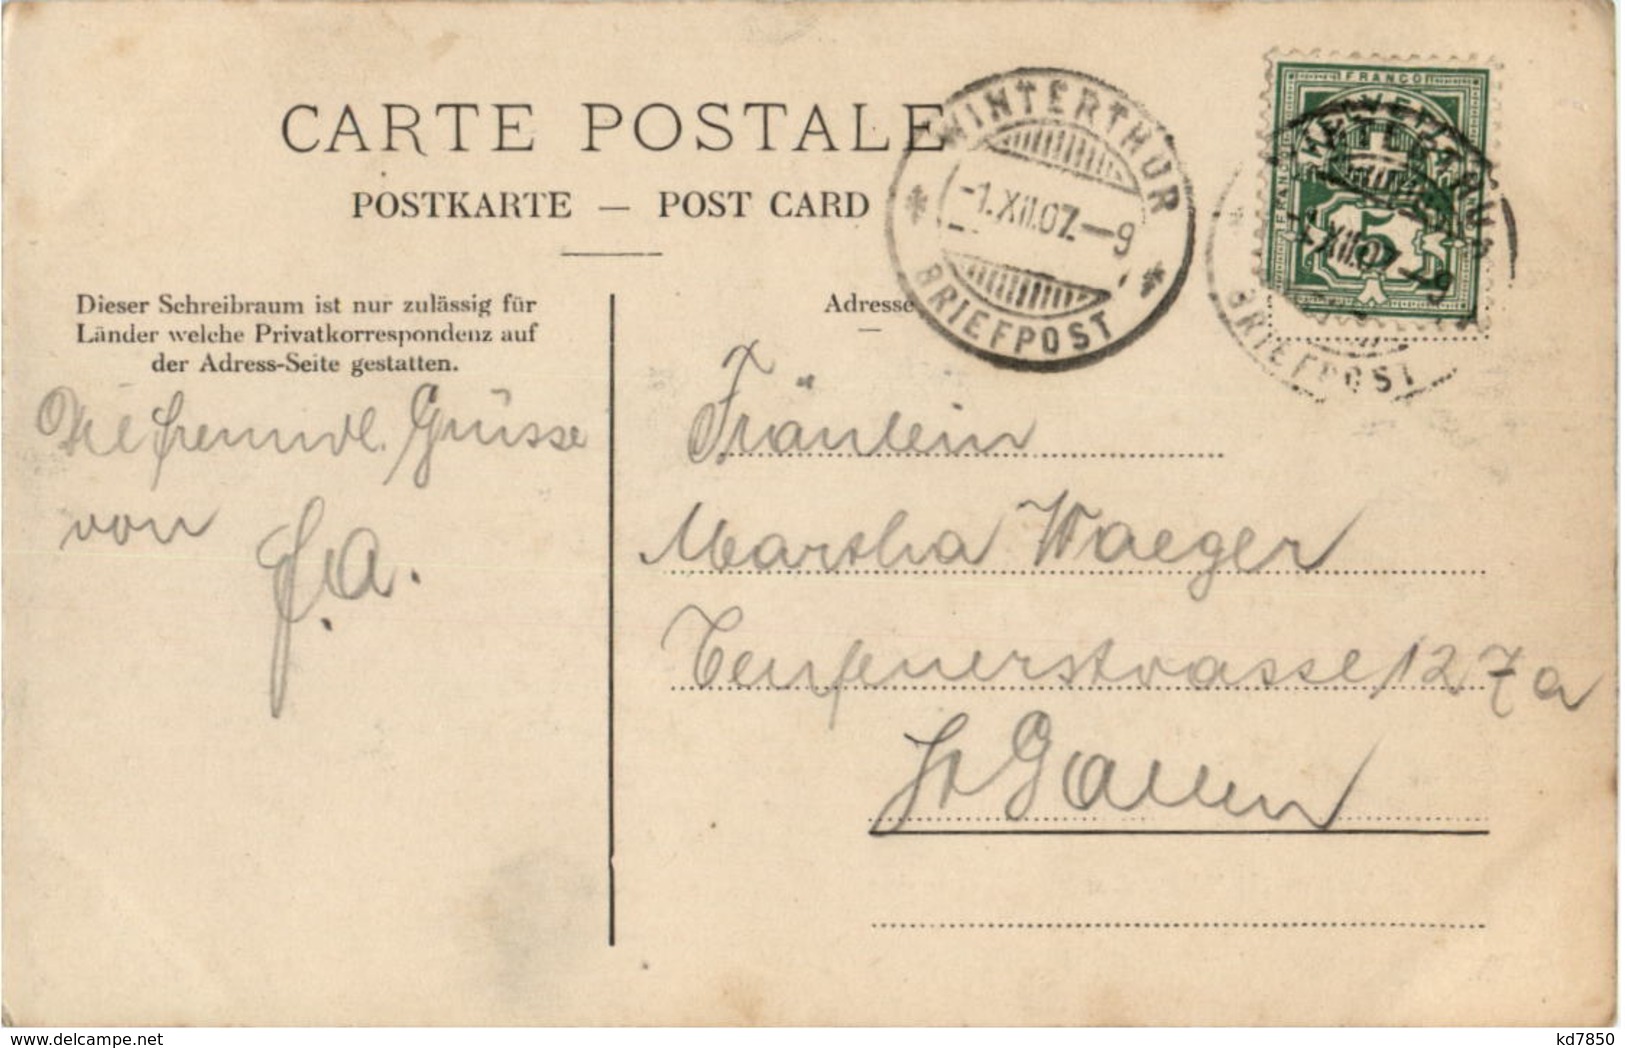 CARTE POSTALE
POSTKARTE — POST CARD
WINTERTHUR
-1.XII.07.-9
BRIEFPOST
FRANCO
HELVETIA
FRANCO
5
-1.XII.07.-9
BRIEFPOST
Dieser Schreibraum ist nur zulässig für
Länder welche Privatkorrespondenz auf
der Adress-Seite gestatten.
Adresse
Viele freundl. Grüsse
von
J. A.
Fräulein
Martha Waeger
Teufenerstrasse 127a
St Gallen
delcampe.net
kd7850